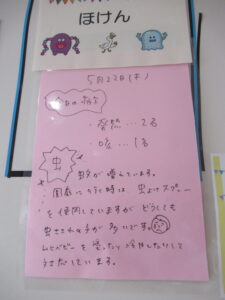 ほけん
5月22日(木)
今日の病欠
・発熱…2名
・咳…1名
虫 蚊が増えています。
園庭に行く時は、虫よけスプレー
を使用していますが どうしても
虫さされの子が多いです。
ムヒベビーを塗ったり冷やしたりして
います。